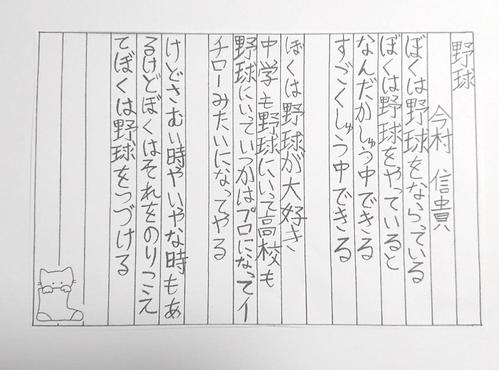 野球
今村 信貴
ぼくは野球をならっている
ぼくは野球をやっていると
なんだかしゅう中できる
すごくしゅう中できる
ぼくは野球が大好き
中学も野球にいって高校も
野球にいていつかはプロになってイ
チローみたいになってやる
けどさむい時やいやな時もあ
るけどぼくはそれをのりこえ
てぼくは野球をつづける